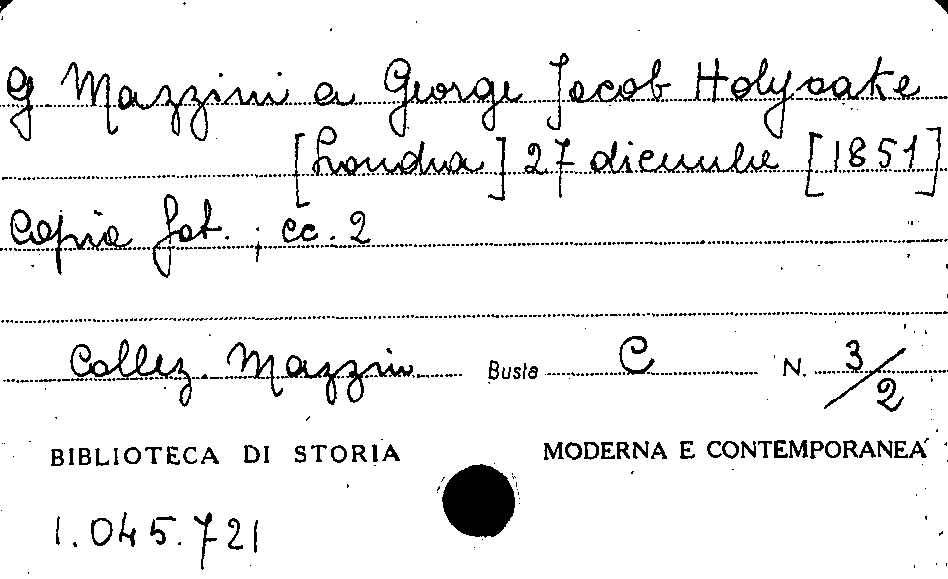 G. Mazzini a George Jacob Holyoake
[Londra] 27 dicembre [1851]
Copia fot. ; cc. 2
Collez. Mazzini Busta C N. 3/2
BIBLIOTECA DI STORIA MODERNA E CONTEMPORANEA
1.045.721